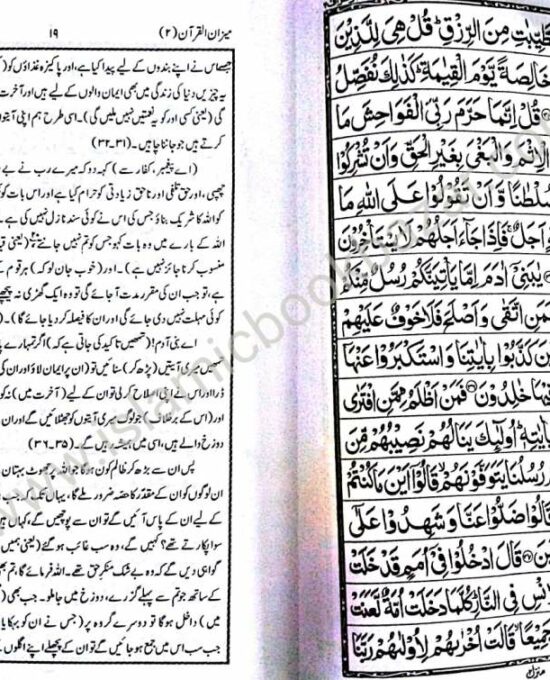 میزان القرآن (۲) ۱۹
جسے اس نے اپنے بندوں کے لیے پیدا کیا ہے، اور پاکیزہ غذاؤں کو (
یہ چیزیں دنیا کی زندگی میں بھی ایمان والوں کے لیے ہیں اور آخرت
گی (یعنی کسی اور کو یہ نعمتیں نہیں ملیں گی)۔ اسی طرح ہم اپنی آیتوں
کرتے ہیں جو جاننا چاہیں۔ (۳۱۔۳۲)
(اے پیغمبر، کفار سے) کہہ دو کہ میرے رب نے بے
چھپی، اور حق تلفی اور ناحق زیادتی کو حرام کیا ہے اور اس بات کو
کو اللہ کا شریک بناؤ جس کی اس نے کوئی سند نازل نہیں کی ہے۔
اللہ کے بارے میں وہ بات کہو جس کو تم نہیں جانتے (یعنی
منسوب کرنا جائز نہیں ہے)۔ اور (خوب جان لو کہ) ہر قوم کے
ہے، تو جب ان کی مقرر مدت آ جائے گی تو وہ ایک گھڑی نہ پیچھے
کوئی مہلت نہیں دی جائے گی اور ان کا فیصلہ کر دیا جائے گا)۔
اے بنی آدم! (تمھیں تاکید کی جاتی ہے کہ) اگر تمہارے
تمھیں میری آیتیں (پڑھ کر) سنائیں تو (ان پر ایمان لاؤ اور ان کی
ڈرا اور اس نے اپنی اصلاح کر لی تو ان کے لیے (آخرت میں) نہ کو
اور (اس کے برخلاف) جو لوگ میری آیتوں کو جھٹلائیں گے اور ان
دوزخ والے ہیں، اسی میں ہمیشہ رہیں گے۔ (۳۵۔۳۶)
پس ان سے بڑھ کر ظالم کون ہوگا جو اللہ پر جھوٹ بہتان
ان لوگوں کو ان کے مقدر کا حصہ ضرور ملے گا، یہاں تک کہ جب
کے لیے ان کے پاس آئیں گے تو ان سے پوچھیں گے، کہاں ہیں
سوا پکارتے تھے؟ کہیں گے، وہ سب غائب ہو گئے (یعنی ہمیں
گواہی دیں گے کہ وہ بے شک منکر حق تھے۔ اللہ فرمائے گا، تم بھی
کے ساتھ جو تم سے پہلے گزرے، دوزخ میں جا ملو۔ جب بھی (
میں) داخل ہوگا تو دوسرے گروہ پر (جس نے ان کو بہکایا
جب سب اس میں جمع ہو جائیں گے تو ان کے پچھلے اپنے اگلوں کے
مِنَ الرِّزْقِ ۚ قُلْ هِيَ لِلَّذِيْنَ
خَالِصَةً يَّوْمَ الْقِيٰمَةِ ۚ كَذٰلِكَ نُفَصِّلُ
قُلْ اِنَّمَا حَرَّمَ رَبِّيَ الْفَوَاحِشَ مَا
الْاِثْمَ وَالْبَغْيَ بِغَيْرِ الْحَقِّ وَاَنْ تُشْرِكُوْا
سُلْطٰنًا وَّ اَنْ تَقُوْلُوْا عَلَى اللّٰهِ مَا
اَجَلٌ ۚ فَاِذَا جَآءَ اَجَلُهُمْ لَا يَسْتَاْخِرُوْنَ
يٰبَنِيْٓ اٰدَمَ اِمَّا يَاْتِيَنَّكُمْ رُسُلٌ مِّنْكُمْ
فَمَنِ اتَّقٰى وَ اَصْلَحَ فَلَا خَوْفٌ عَلَيْهِمْ
كَذَّبُوْا بِاٰيٰتِنَا وَ اسْتَكْبَرُوْا عَنْهَا
خٰلِدُوْنَ ۝ فَمَنْ اَظْلَمُ مِمَّنِ افْتَرٰى
بِاٰيٰتِهٖ ۚ اُولٰٓئِكَ يَنَالُهُمْ نَصِيْبُهُمْ مِّنَ
رُسُلُنَا يَتَوَفَّوْنَهُمْ ۙ قَالُوْٓا اَيْنَ مَا كُنْتُمْ
قَالُوْا ضَلُّوْا عَنَّا وَ شَهِدُوْا عَلٰٓى
قَالَ ادْخُلُوْا فِيْٓ اُمَمٍ قَدْ خَلَتْ
فِي النَّارِ ۚ كُلَّمَا دَخَلَتْ اُمَّةٌ لَّعَنَتْ
جَمِيْعًا ۙ قَالَتْ اُخْرٰىهُمْ لِاُوْلٰىهُمْ رَبَّنَا
منزل